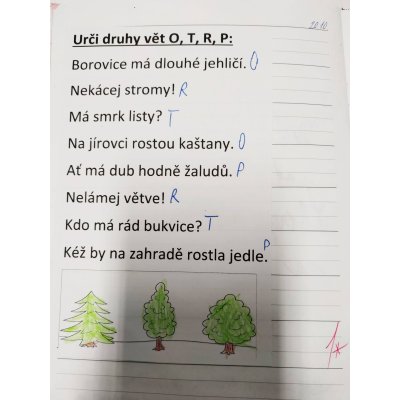 20.10
Urči druhy vět O, T, R, P:
Borovice má dlouhé jehličí. O
Nekácej stromy! R
Má smrk listy? T
Na jírovci rostou kaštany. O
Ať má dub hodně žaludů. P
Nelámej větve! R
Kdo má rád bukvice? T
Kéž by na zahradě rostla jedle. P
1*